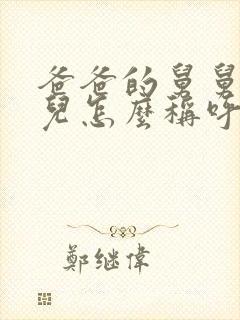 爸爸的舅舅
兒怎麼稱呼
鄭继偉